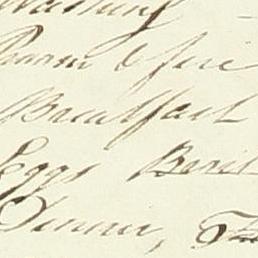 Washing
Room & fire
Breakfast
Eggs
Dinner,